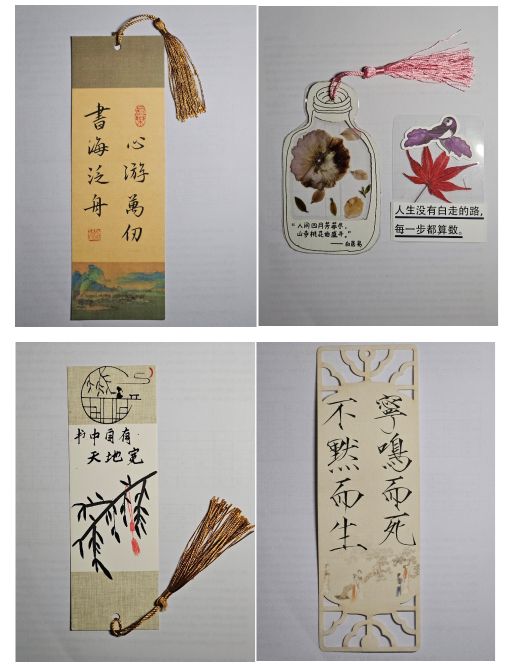 心游萬仞
書海泛舟
"人间四月芳菲尽，
山寺桃花始盛开。"
——白居易
人生没有白走的路，
每一步都算数。
书中自有
天地宽
寧鳴而死
不默而生